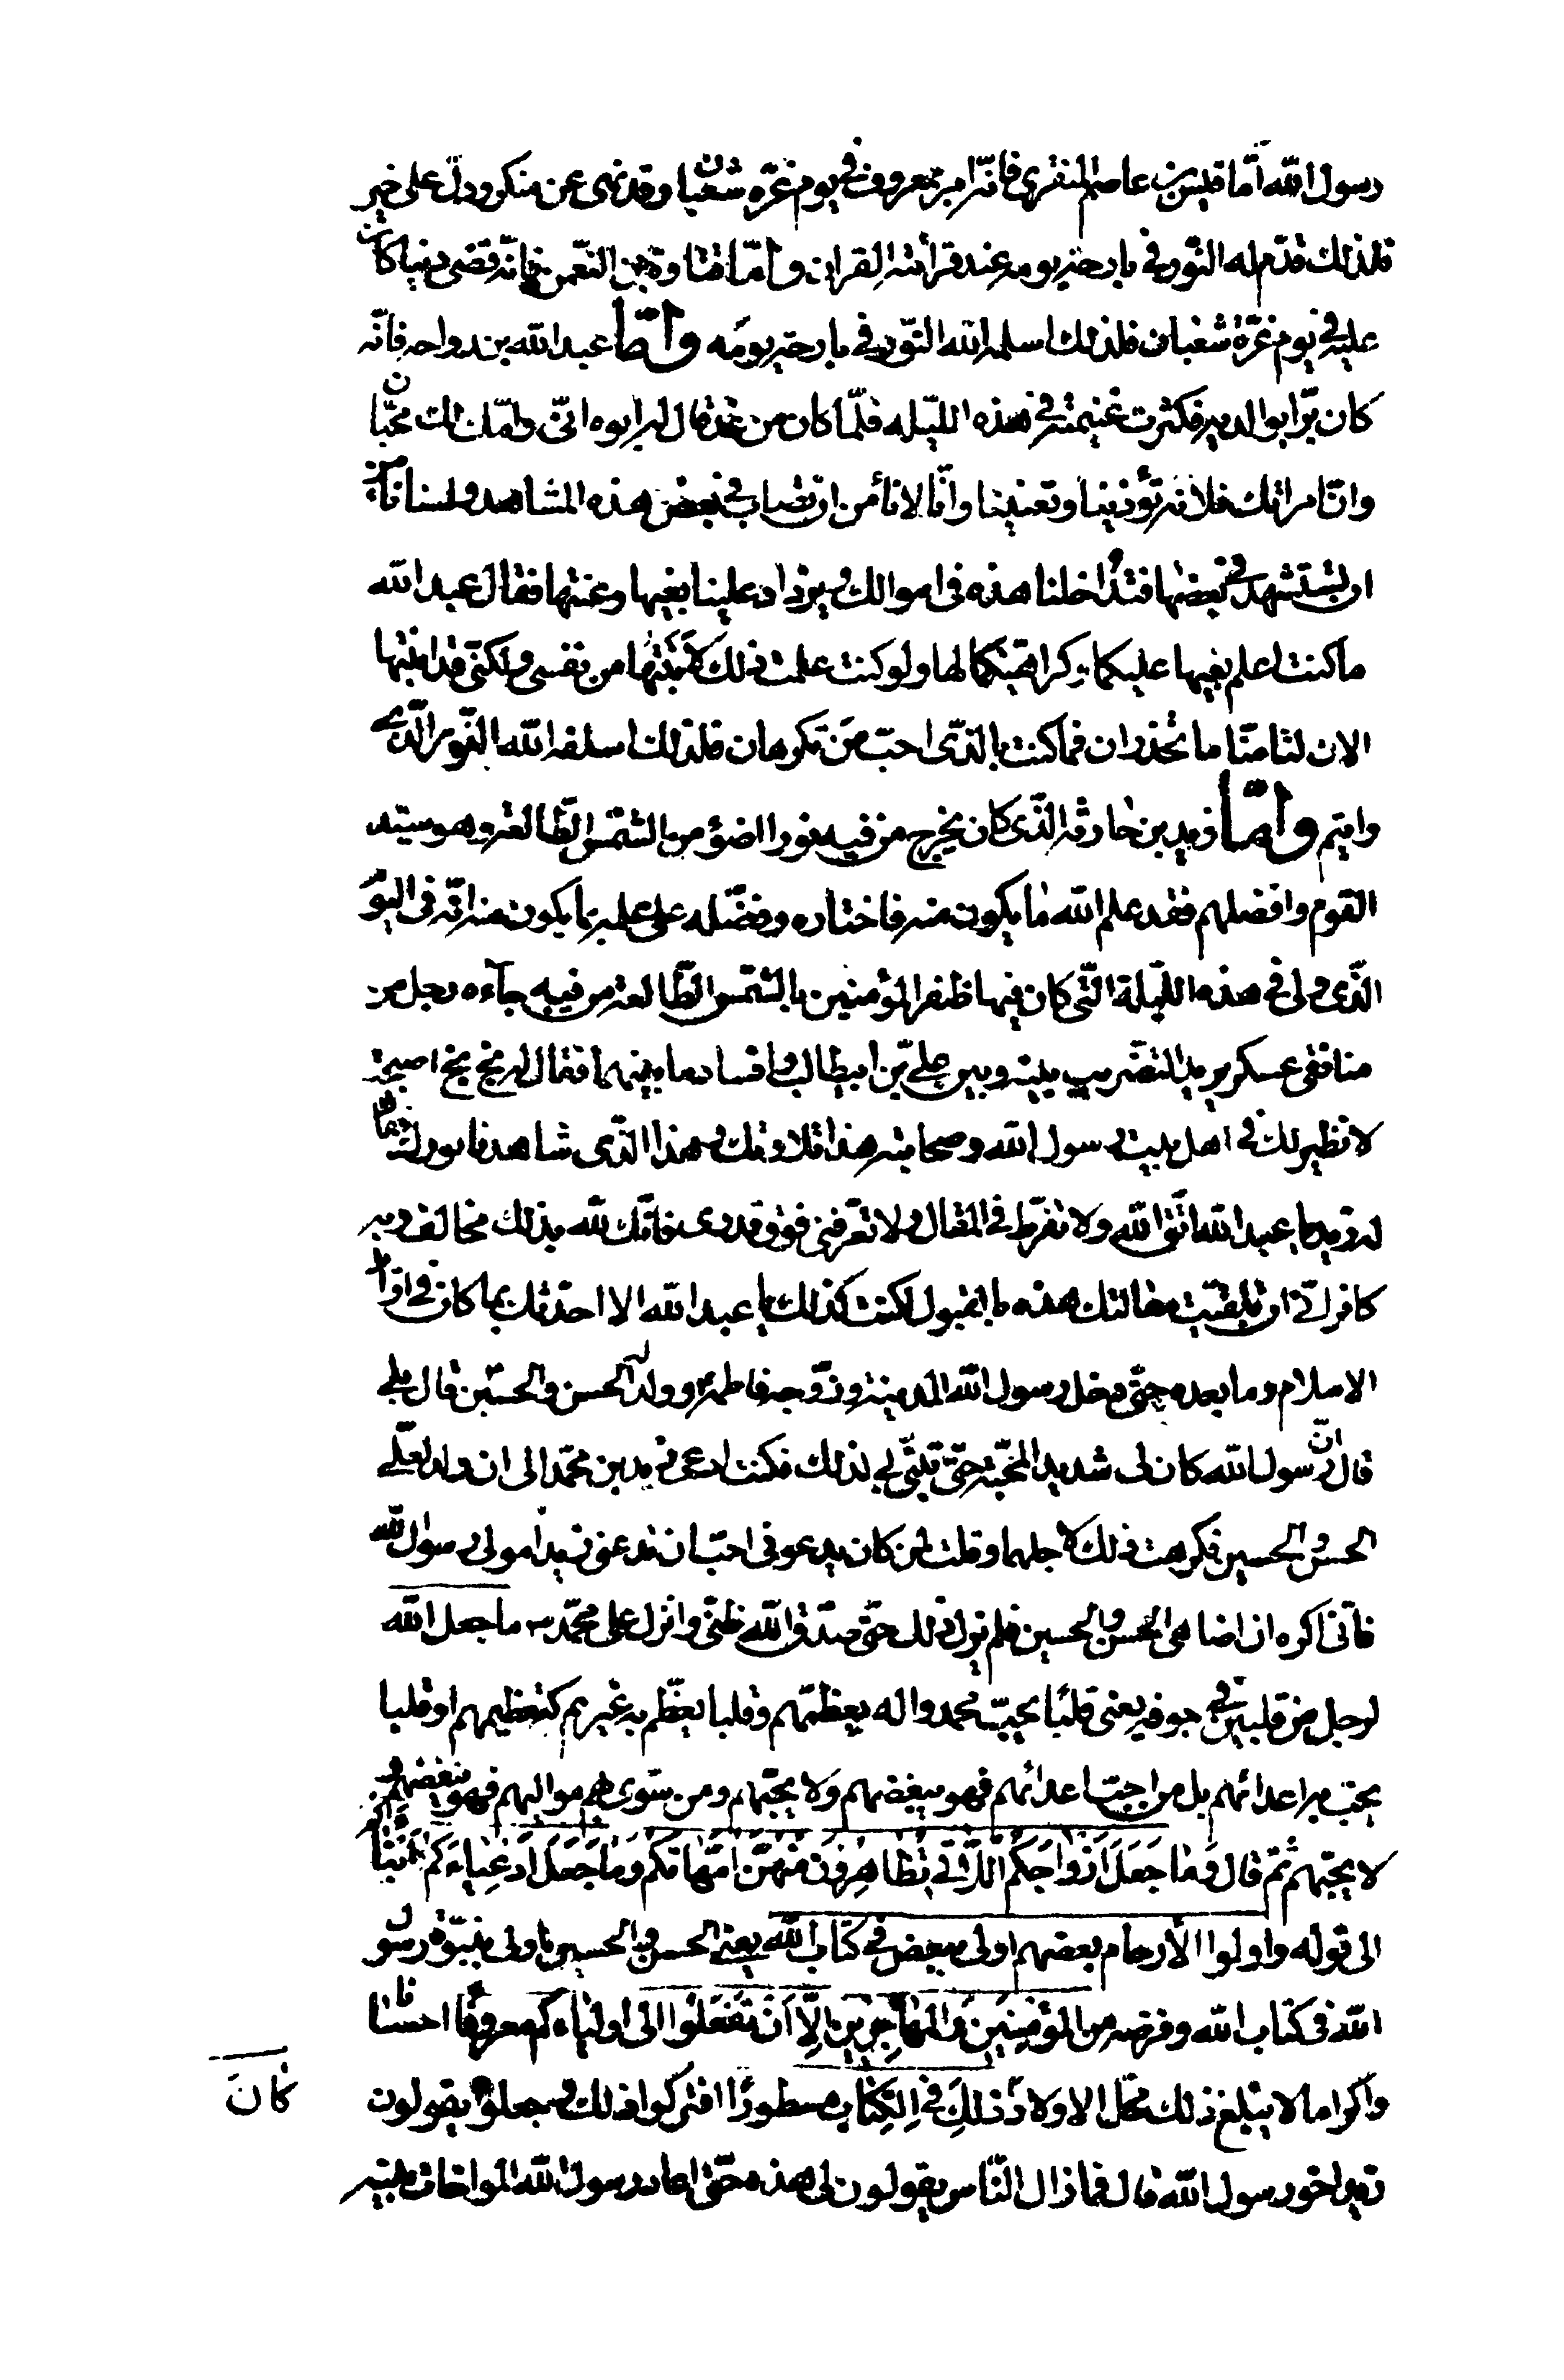 رسول الله امّا قيس بن عاصم المنقرى فانّه امر بمعروف فى يوم غرّه شعبان وقد نهى عن منكر ودلّ على خير
فلذلك قدّم له النّور فى بارحة يومه عند قرأته القران وامّا قتاوة بن النعمن فانّه قضى دينا كان
عليه فى يوم غرّة شعبان فلذلك اسلفه الله النّور فى بارحة يومه وامّا عبد الله بن رواحه فانّه
كان برّا بوالديه فكثرت غنيمته فى هذه الليله فلمّا كان من غد قال له ابوه انّى وامّك لك محبّان
وانّ امراتك فلانه تؤذينا وتعنينا وانّا لا نأمن ان تصاب فى بعض هذه المشاهد ولسنا نأمن
ان تستشهد فى بعضها فتداخلنا هذه فى اموالك ويزداد علينا بغيها وعنتها فقال عبد الله
ما كنت اعلم بغيها عليكما وكراهيتكما لها ولو كنت علمت ذلك لابنتها من نفسى ولكنّى قد ابنتها
الان لتامنّا ما تحذران فما كنت بالذّى احبّ من تكرهان فلذلك اسلفه الله النّور الذّى
رايتم وامّا زيد بن حارثه الذّى كان يخرج من فيه نورا اضؤ من الشّمس الطّالعة وهو سيّد
القوم وافضلهم فقد علم الله ما يكون منه فاختاره وفضّله على علمه بما يكون منه انّه فى اليوم
الذّى ولى فى هذه اللّيلة التّى كان فيها ظفر المؤمنين بالشّمس الطّالعة من فيه جآءه رجل من
منافقى عسكر يريد التضريب بينه وبين على بن ابيطالب وافساد ما بينهما فقال له بخ بخ اصبحت
لا نظير لك فى اهل بيت رسول الله وصحابته هذا بلاؤك وهذا الذّى شاهدنا نورك فقال
له زيد يا عبد الله اتّق الله ولا تفرط فى المقال ولا ترفعنى فوق قدرى فانّك لله بذلك مخالف وبه
كافر انّى ان تلقّيت مقالتك هذه بالقبول لكنت كذلك يا عبد الله الا احدّثك بما كان فى اوائل
الاسلام وما بعده حتّى دخل رسول الله المدينة وزوّجه فاطمة وولد له الحسن والحسين قال بلى
قال انّ رسول الله كان لى شديد المحبّة حتّى تبنّى لى لذلك فكنت ادعى زيد بن محمّد الى ان ولد لعلّى
الحسن والحسين فكرهت ذلك لاجلهما وقلت لمن كان يدعونى احبّ ان تدعونى زيدا مولى رسول الله
فانّى اكره ان اضاهى الحسن والحسين فلم يزل ذلك حتّى صدّق الله ظنّى وانزل على محمّد ما جعل الله
لرجل من قلبين فى جوفه يعنى قلبا يحبّ محمد واله يعظمّهم وقلبا يعظّم به غيرهم كتعظيمهم او قلبا
يحب به اعدائهم بل من احبّ اعدائهم فهو يبغضهم ولا يحبّهم ومن سوّى بهم مواليهم فهو يبغضهم و
لا يحبّهم ثمّ قال وَمٰا جَعَلَ اَزْواجَكُمُ اللاّٰئى تُظٰاهِرُونَ مِنْهُنَّ اُمَّهاتِكم وَمٰا جَعَلَ اَدْعِيٰاءَكُم اَبْنٰاءَكُم
الى قوله واولوا الأرحام بعضهم اولى ببعض فى كتاب الله يعنى الحسن والحسين اولى ببنوّة رسول
الله فى كتاب الله وفرضه من المؤمِنِينَ وَالمُهٰاجِرِينَ اِلّا اَنْ تَفْعَلُوا الى اوليٰاءِكُم معروفًا احسانا
واكراما لا يبلغ ذلك محلّ الاولاد كٰانَ ذٰلِكَ فى الِكتٰابِ مسطورًا فتركوا ذلك وجعلوا يقولون
زيد اخو رسول الله قال فما زال النّاس يقولون لى هذه حتّى اعاد رسول الله المواخات بينه
كٰانَ